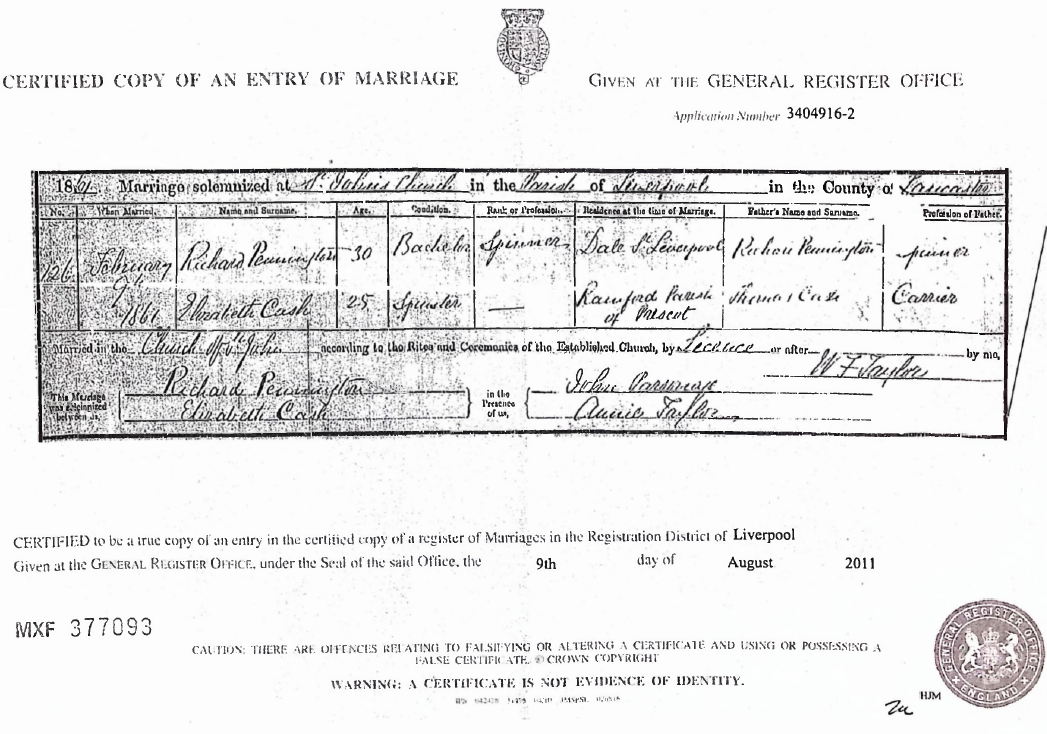 CERTIFIED COPY OF AN ENTRY OF MARRIAGE
GIVEN AT THE GENERAL REGISTER OFFICE
Application Number 3404916-2
1861. Marriage solemnized at St. John's Church in the Parish of Liverpool in the County of Lancaster
No. When Married. Name and Surname. Age. Condition. Rank or Profession. Residence at the time of Marriage. Father's Name and Surname. Profession of Father.
126 February 9th 1861 Richard Pennington 30 Bachelor Spinner Dale St Liverpool Richard Pennington Spinner
Elizabeth Cash 25 Spinster — Rainford Parish of Prescot Thomas Cash Carrier
Married in the Church of St John according to the Rites and Ceremonies of the Established Church, by Licence or after by me,
W F Taylor
This Marriage was solemnized between us, Richard Pennington Elizabeth Cash in the Presence of us, John Annie Taylor
CERTIFIED to be a true copy of an entry in the certified copy of a register of Marriages in the Registration District of Liverpool
Given at the GENERAL REGISTER OFFICE, under the Seal of the said Office, the 9th day of August 2011
MXF 377093
CAUTION: THERE ARE OFFENCES RELATING TO FALSIFYING OR ALTERING A CERTIFICATE AND USING OR POSSESSING A
FALSE CERTIFICATE. © CROWN COPYRIGHT
WARNING: A CERTIFICATE IS NOT EVIDENCE OF IDENTITY.
GENERAL REGISTER OFFICE
ENGLAND
HJM